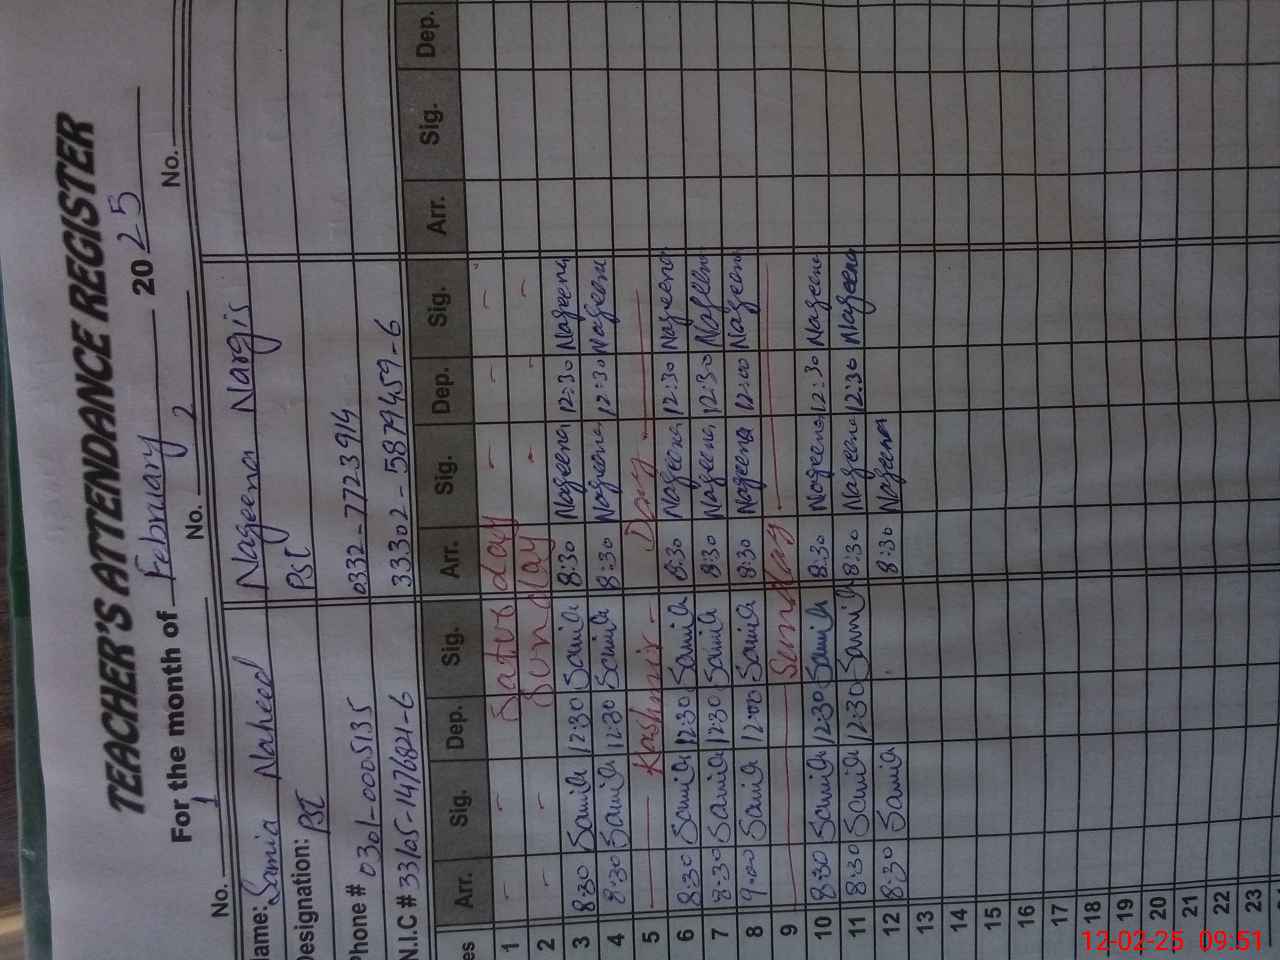 TEACHER'S ATTENDANCE REGISTER
For the month of February 2025
No. 1 No. 2 No.
ame: Samia Naheed Nageena Nargis
Designation: PST PST
Phone # 0301-0005135 0332-7723914
N.I.C # 33105-1476821-6 33302-5879459-6
es Arr. Sig. Dep. Sig. Arr. Sig. Dep. Sig. Arr. Sig. Dep.
1 - - Saturday - - -
2 - - Sunday - - -
3 8:30 Samia 12:30 Samia 8:30 Nageena 12:30 Nageena
4 8:30 Samia 12:30 Samia 8:30 Nageena 12:30 Nageena
5 Kashmir - Day
6 8:30 Samia 12:30 Samia 8:30 Nageena 12:30 Nageena
7 8:30 Samia 12:30 Samia 8:30 Nageena 12:30 Nageena
8 9:00 Samia 12:00 Samia 8:30 Nageena 12:00 Nageena
9 Sunday
10 8:30 Samia 12:30 Samia 8:30 Nageena 12:30 Nageena
11 8:30 Samia 12:30 Samia 8:30 Nageena 12:30 Nageena
12 8:30 Samia 8:30 Nageena
13
14
15
16
17
18
19
20
21
22
23
12-02-25 09:51